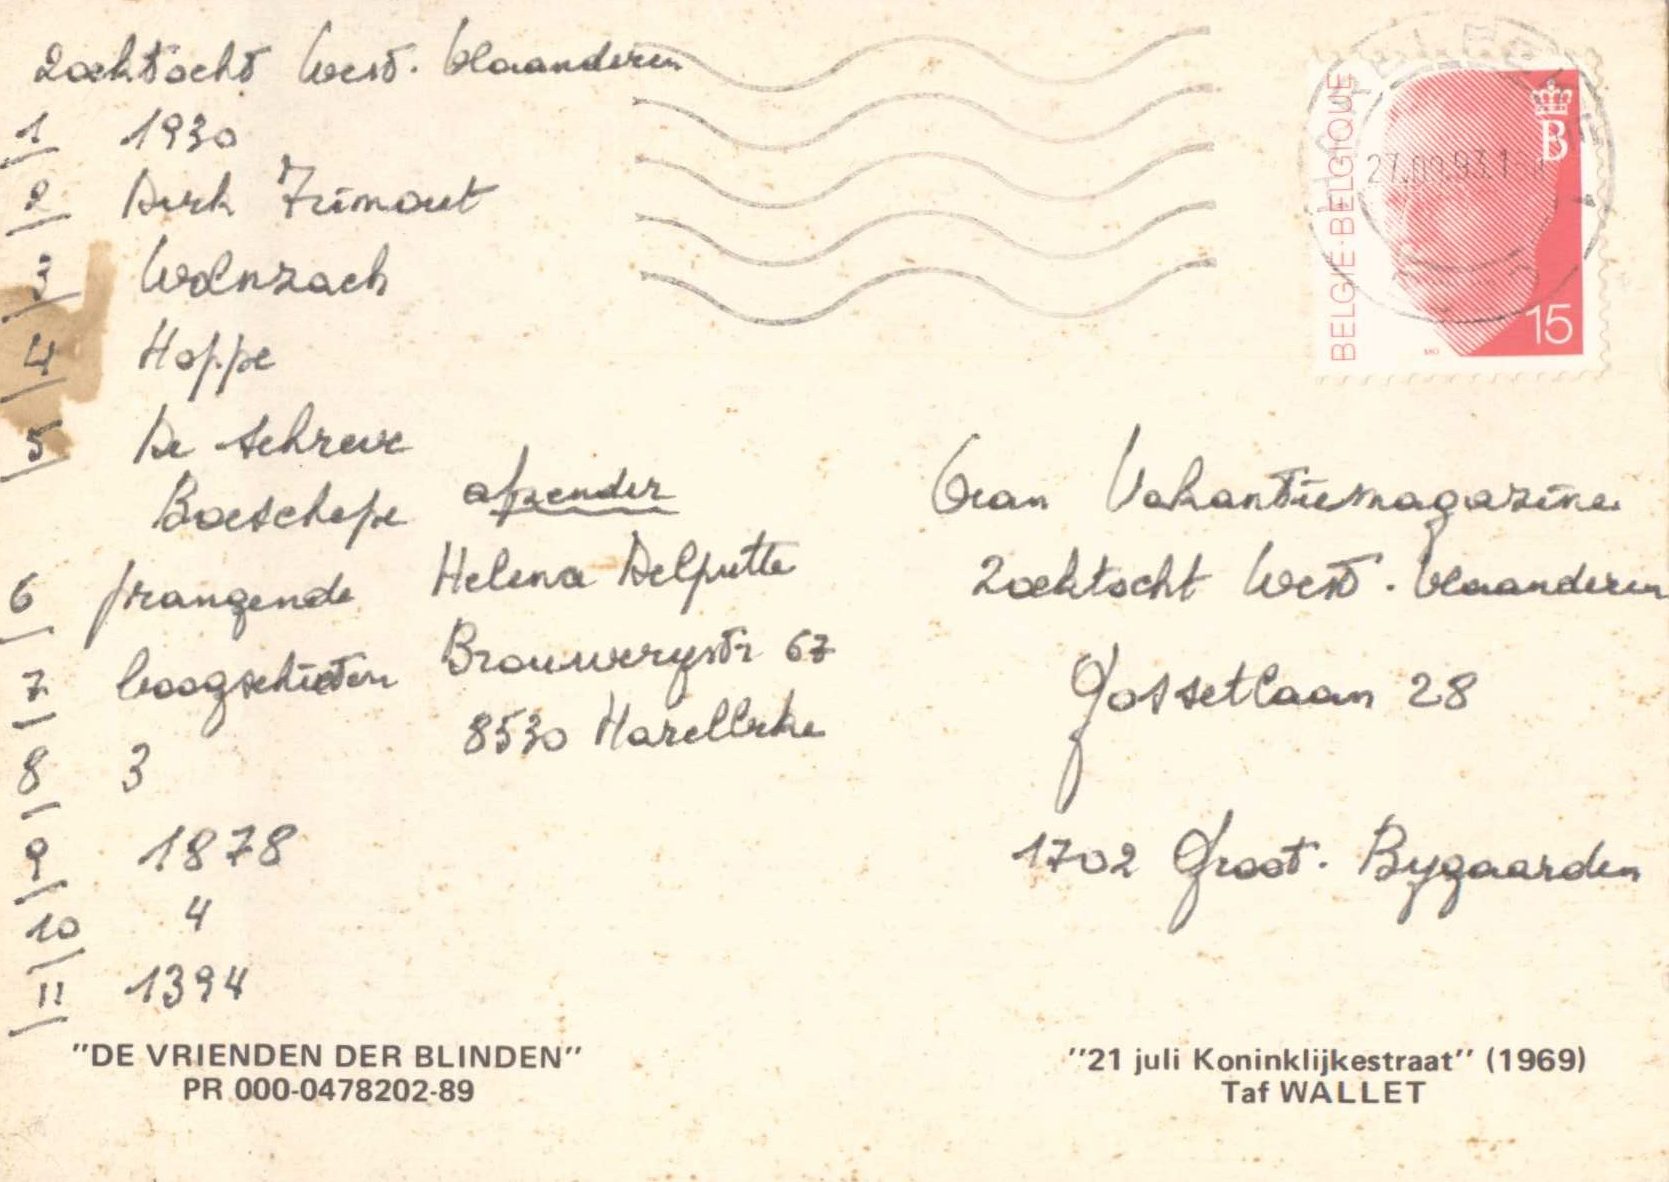 Zoektocht West-Vlaanderen
1 1930
2 Dirk Frimout
3 Wolnzach
4 Hoppe
5 De Schreve
Boeschepe
6 prangende
7 boogschieten
8 3
9 1878
10 4
11 1394
afzender
Helena Delputte
Brouwerystr 67
8530 Harelbeke
"DE VRIENDEN DER BLINDEN"
PR 000-0478202-89
BELGIE·BELGIQUE
B
15
27.09.93.1
Van Vakantiemagazine
Zoektocht West-Vlaanderen
Gossetlaan 28
1702 Groot-Bygaarden
"21 juli Koninklijkestraat" (1969)
Taf WALLET